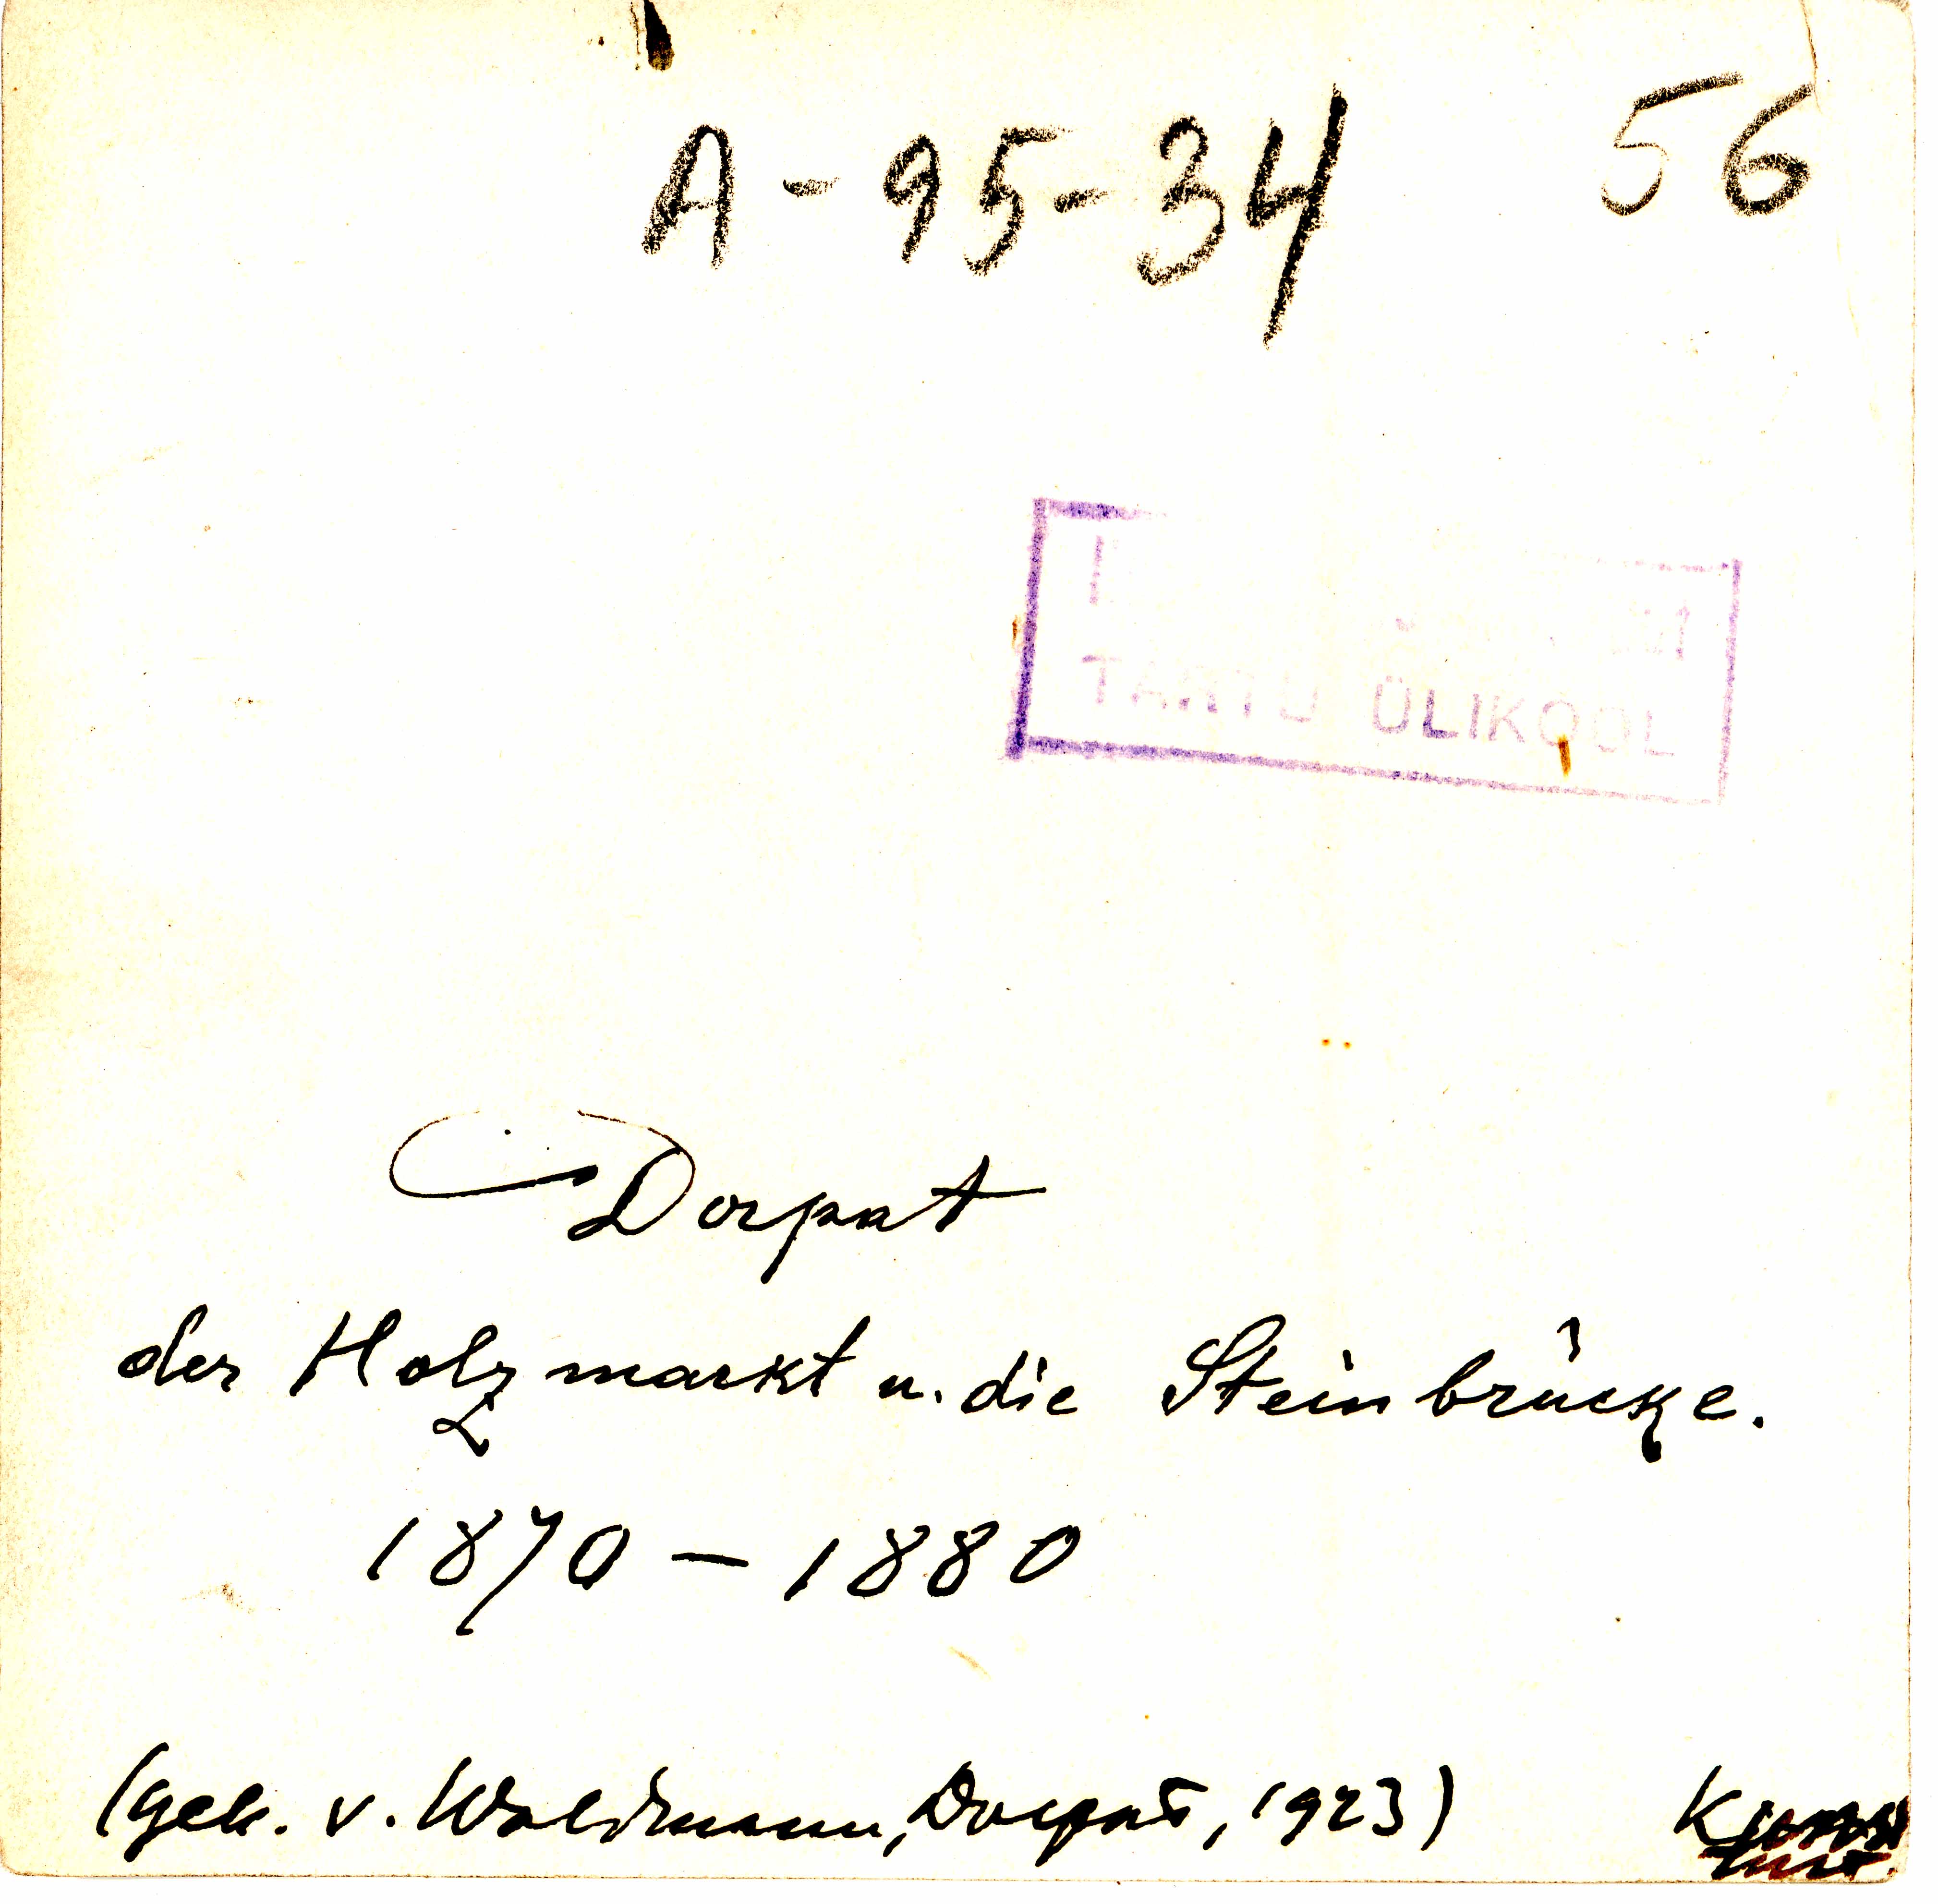 A-95-34 56
TARTU ÜLIKOOL
Dorpat
der Holzmarkt u. die Steinbrücke.
1870 – 1880
(geb. v. Waldmann, Dorpat, 1923)